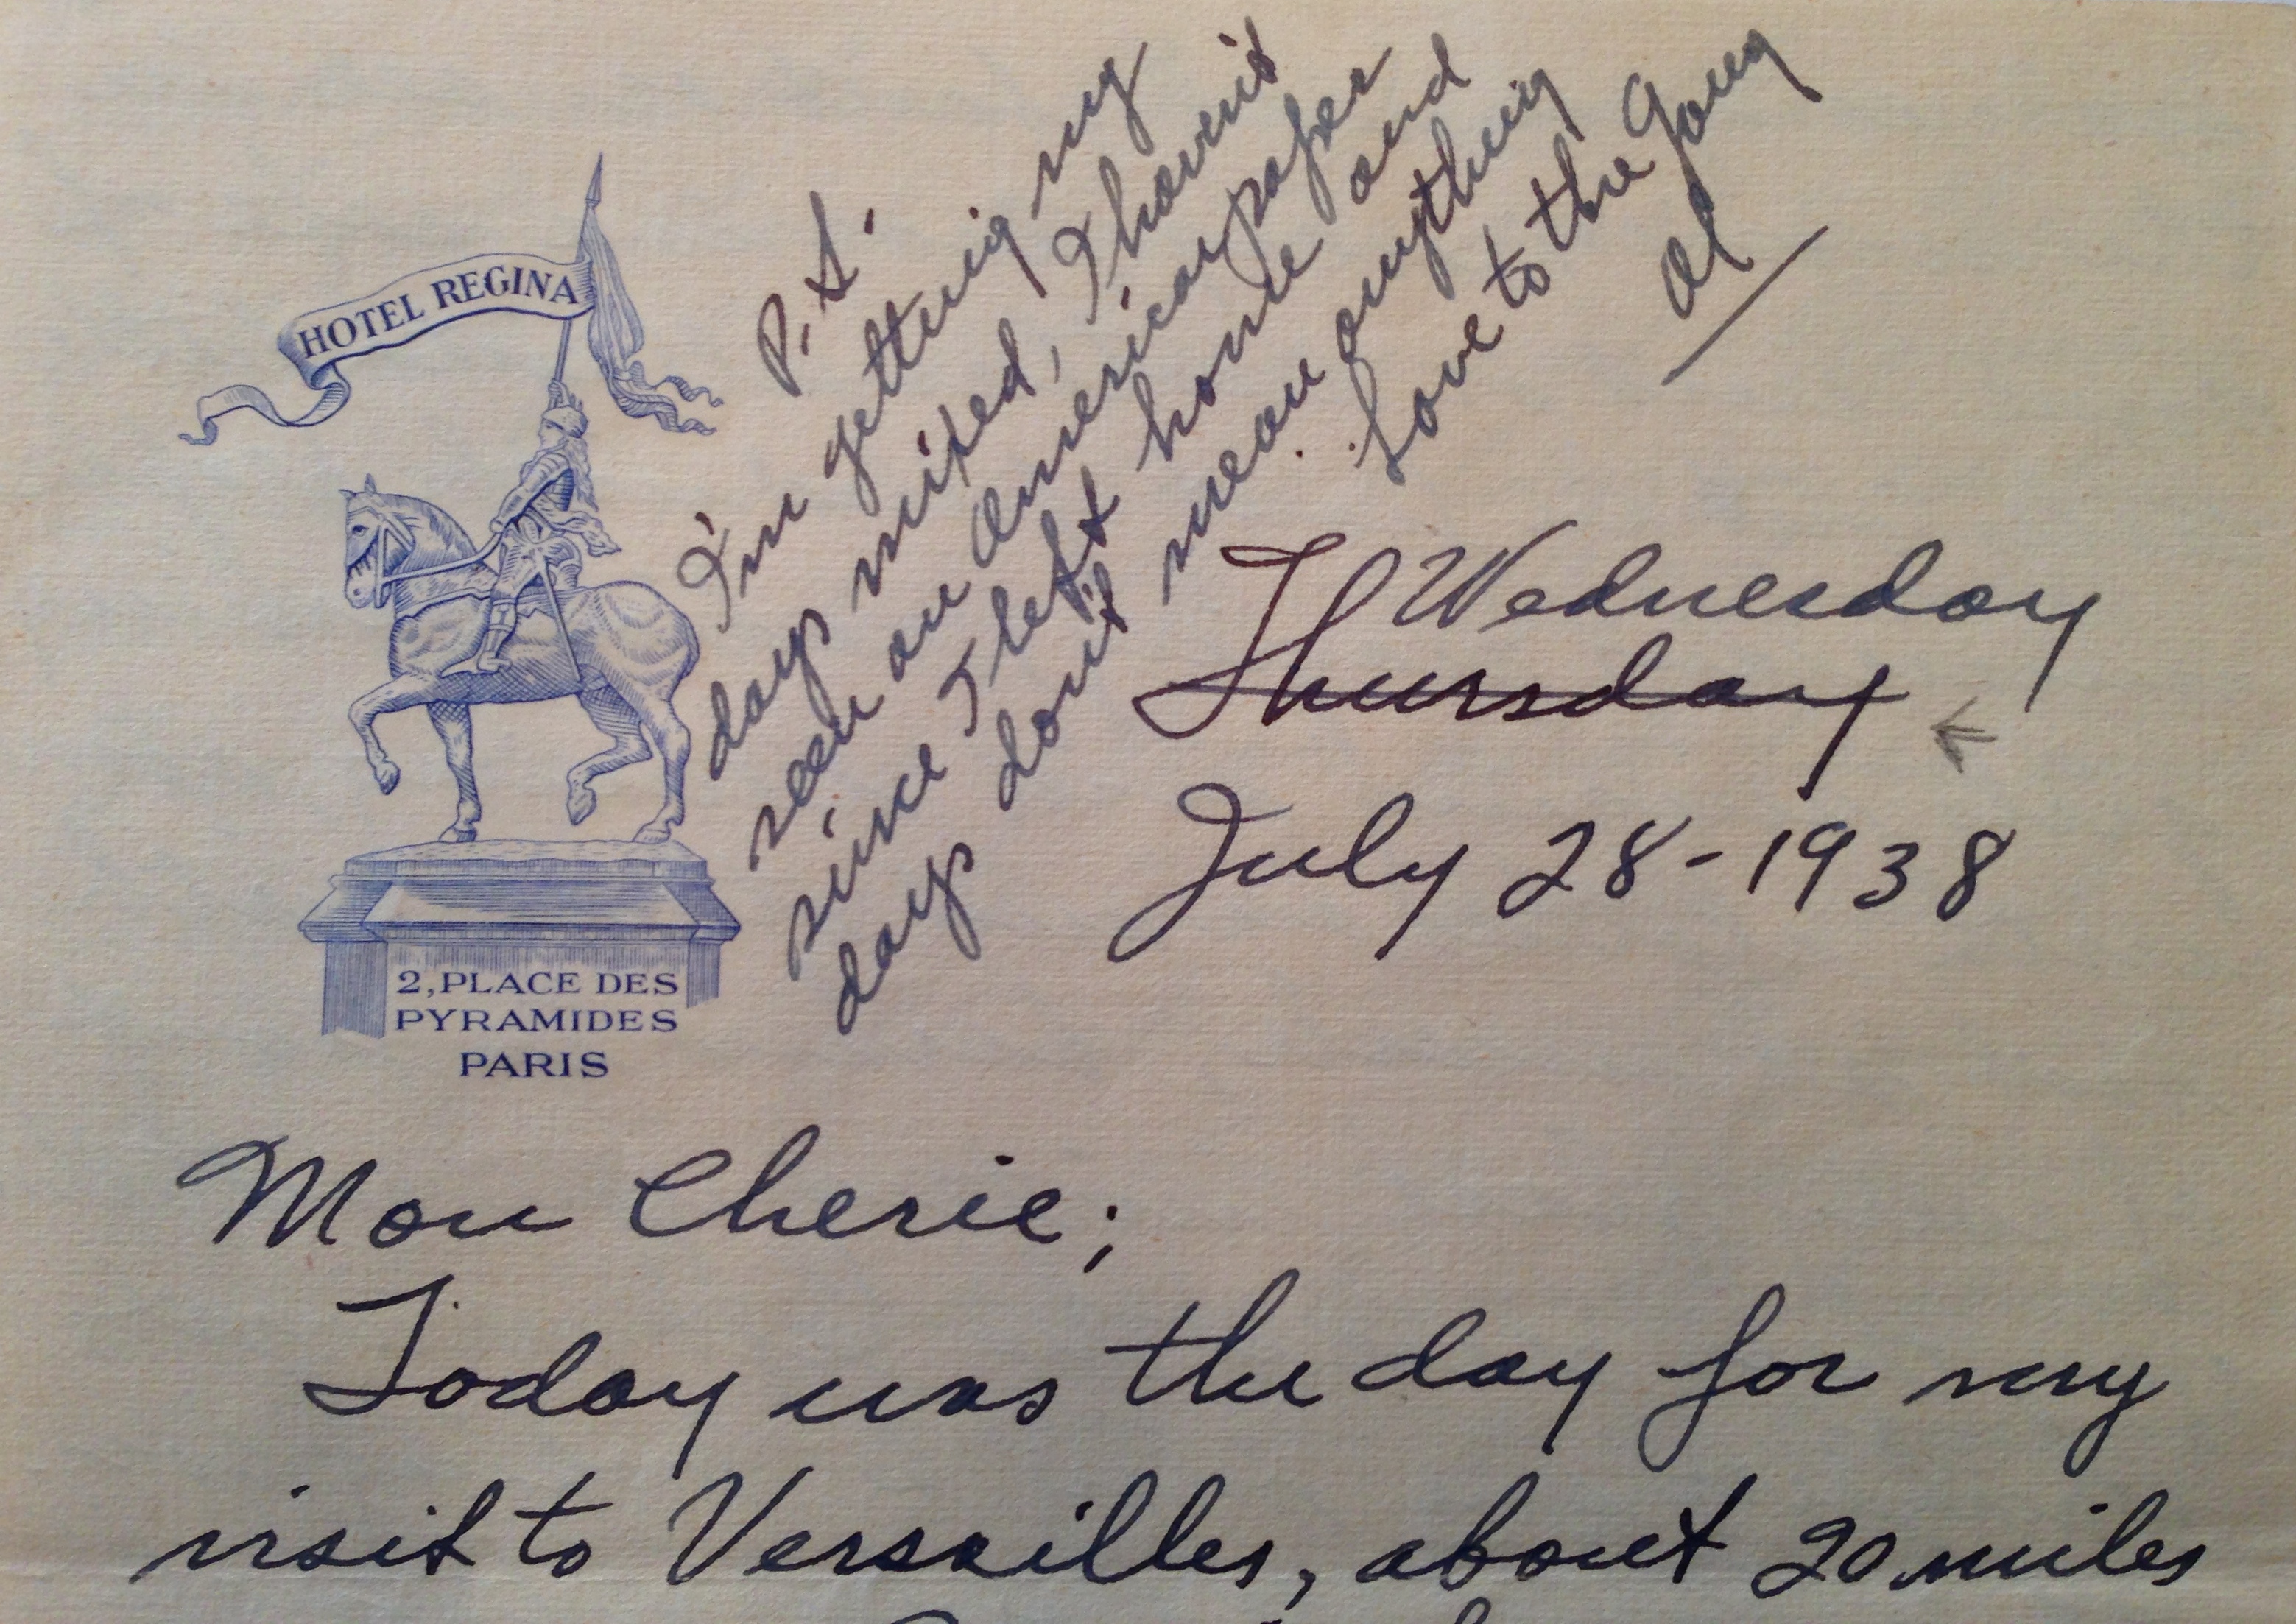 HOTEL REGINA
2, PLACE DES
PYRAMIDES
PARIS
P.S.
I'm getting my
days mixed, I haven't
seen an American paper
since I left home and
days don't mean anything
Love to the Gang
Al
Wednesday
Thursday
July 28-1938
Mon Cherie;
Today was the day for my
visit to Versailles, about 20 miles